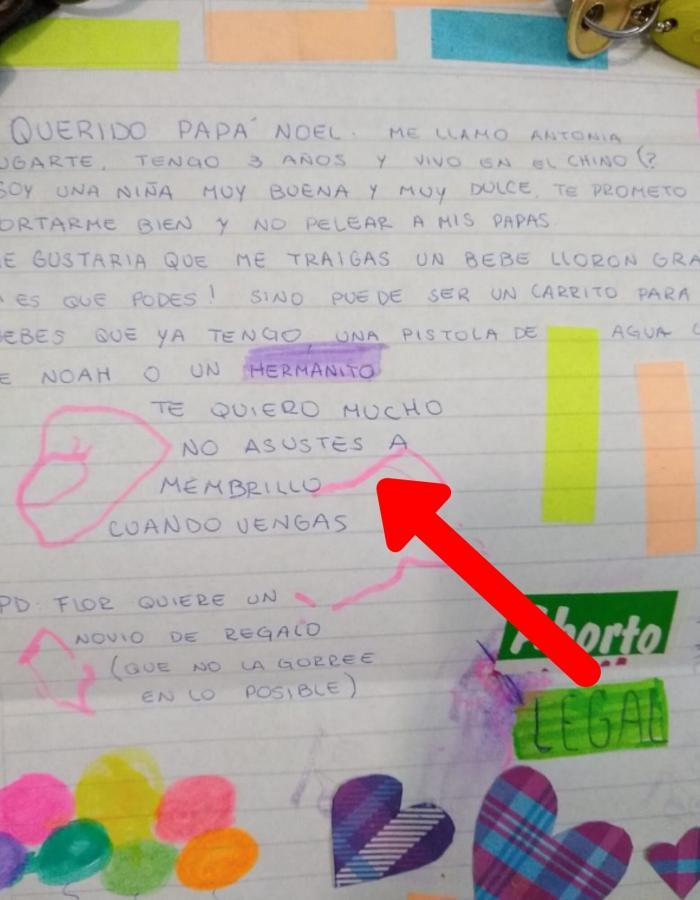 QUERIDO PAPA´ NOEL. ME LLAMO ANTONIA
UGARTE. TENGO 3 AÑOS Y VIVO EN EL CHINO (?
SOY UNA NIÑA MUY BUENA Y MUY DULCE. TE PROMETO
ORTARME BIEN Y NO PELEAR A MIS PAPAS
E GUSTARIA QUE ME TRAIGAS UN BEBE LLORON GRA
ES QUE PODES! SINO PUEDE SER UN CARRITO PARA
EBES QUE YA TENGO, UNA PISTOLA DE AGUA
E NOAH O UN HERMANITO
TE QUIERO MUCHO
NO ASUSTES A
MEMBRILLO
CUANDO VENGAS
PD: FLOR QUIERE UN
NOVIO DE REGALO
(QUE NO LA GORREE
EN LO POSIBLE)
Aborto
LEGAL